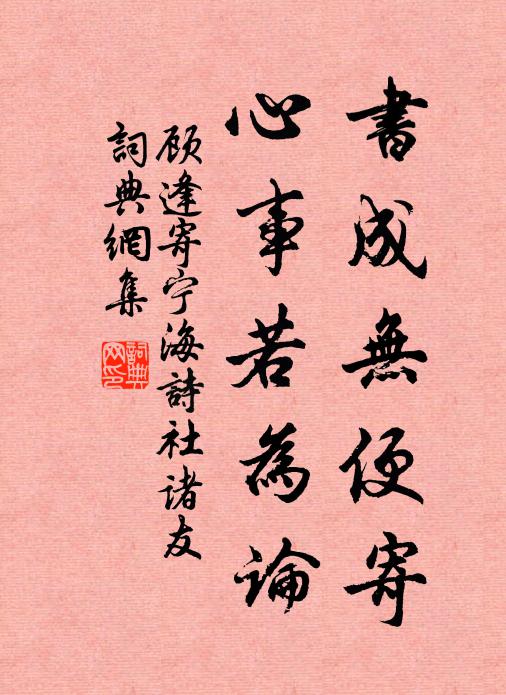 書成無便寄
心事若為論
顾逢寄宁海詩社诸友
詞典網集
詞典网印